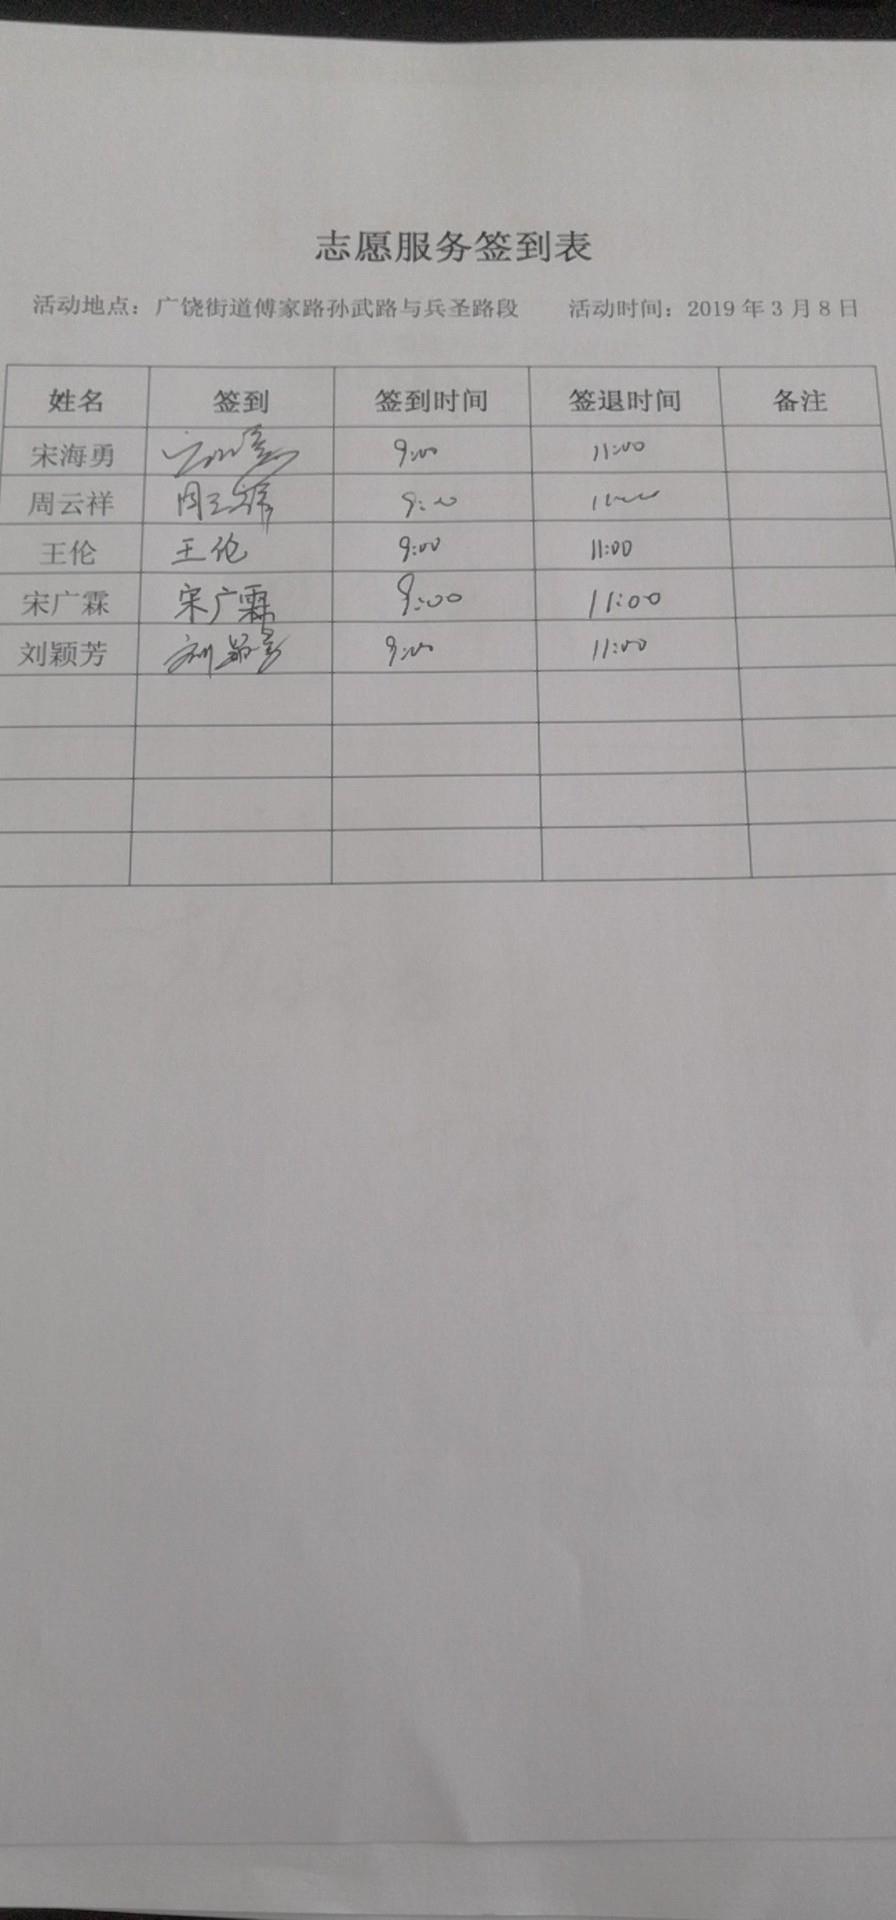 志愿服务签到表
活动地点：广饶街道傅家路孙武路与兵圣路段 活动时间：2019 年 3 月 8 日
姓名 签到 签到时间 签退时间 备注
宋海勇 9:00 11:00
周云祥 周云祥 9:00 11:00
王伦 王伦 9:00 11:00
宋广霖 宋广霖 9:00 11:00
刘颖芳 刘颖芳 9:00 11:00